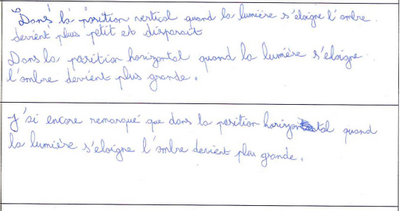 Dans la position vertical quand la lumière s'éloigne l'ombre
devient plus petit et disparait
Dans la position horizontal quand la lumière s'éloigne
l'ombre devient plus grande.
J'ai encore remarqué que dans la position horizontal quand
la lumière s'eloigne l'ombre devient plus grande.